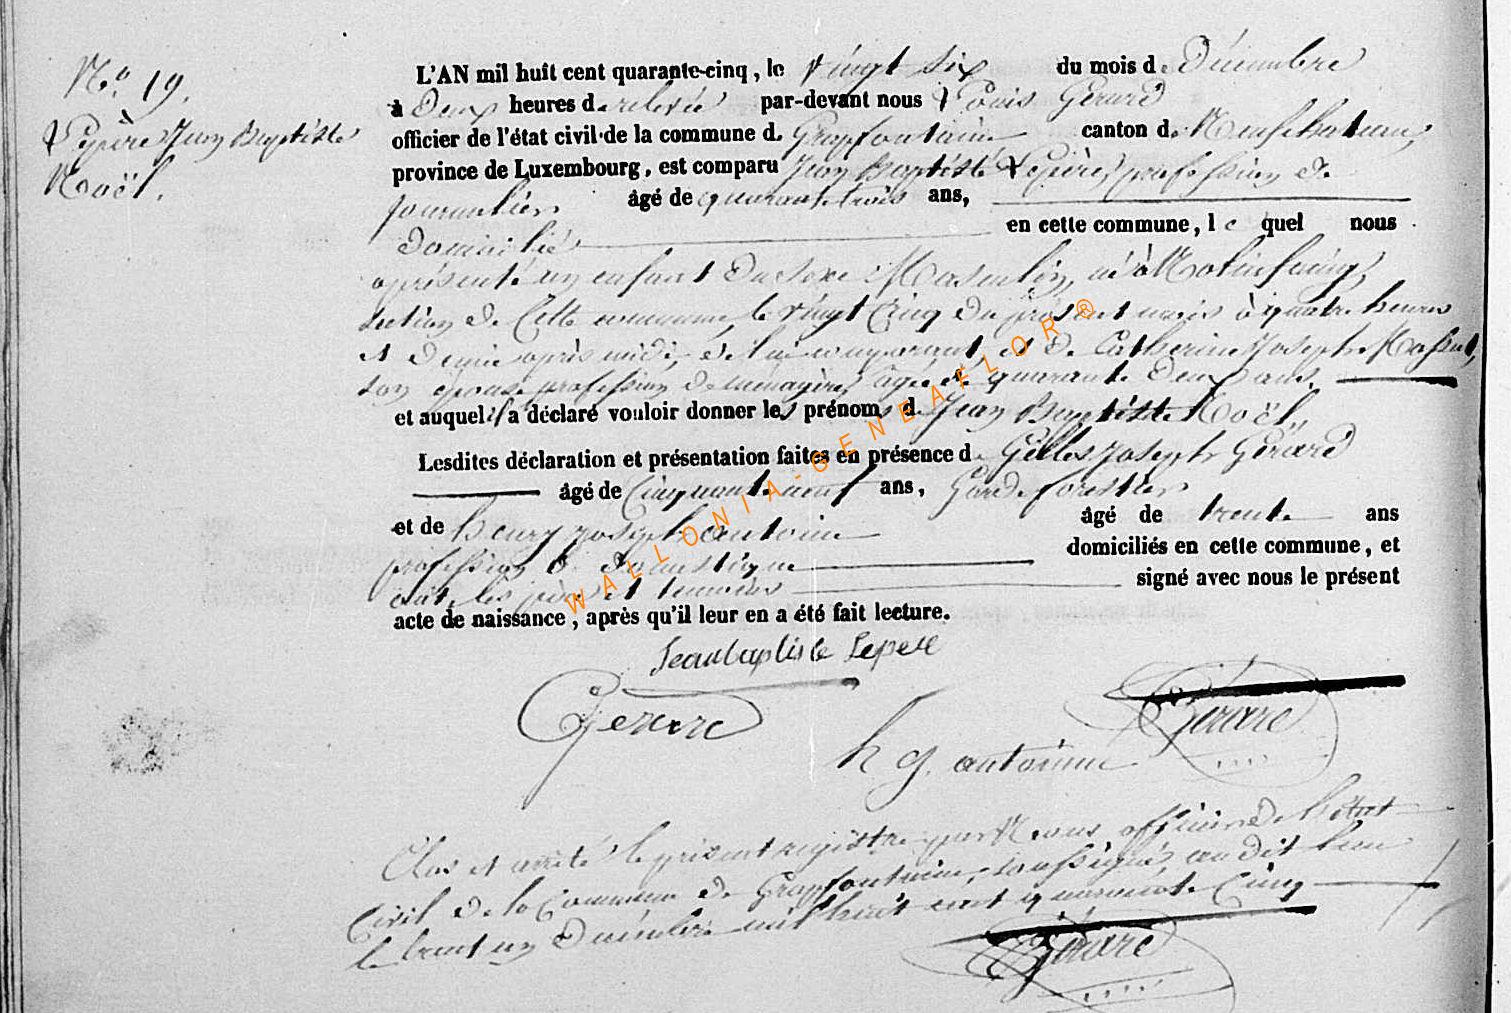 N.o 19.
Lepère Jean Baptiste
Noël.
L'AN mil huit cent quarante-cinq, le vingt six du mois de Décembre
à Deux heures de relevée par-devant nous Louis Gérard
officier de l'état civil de la commune de Grapfontaine canton de Neufchateau,
province de Luxembourg, est comparu Jean Baptiste Lepère, profession de
journalier âgé de quarante trois ans,
domicilié en cette commune, lequel nous
a présenté un enfant du sexe Masculin, né à Molinfaing,
section de Cette commune, le vingt cinq du présent mois à quatre heures
et demie après midi, de lui comparant, et de Catherine Joseph
son épouse profession de ménagère, âgée de quarante deux ans.
et auquel il a déclaré vouloir donner les prénoms de Jean Baptiste Noël,
Lesdites déclaration et présentation faites en présence de Gilles Joseph Gérard
âgé de Cinquante neuf ans, Garde forestier
et de henry joseph antoine âgé de trente ans
profession de domestique domiciliés en cette commune, et
ont, les père et temoins signé avec nous le présent
acte de naissance, après qu'il leur en a été fait lecture.
Jean baptiste Lepere
Gerard
Gérard
h g. antoinne
Clos et arrêté le présent registre par Nous officier de l'état
Civil de la Commune de Grapfontaine, soussigné, au dit lieu
le trent un Décembre mil huit cent quarante Cinq
Gérard
WALLONIA-GENEAFLOR®